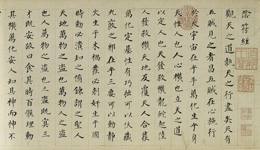 陰符經
觀天之道執天之行盡矣天有
五賊見之者昌五賊在心施行
於天宇宙在乎手萬化生乎身
天性人也人心機也立天之道
以定人也天發殺機龍蛇起陸
人發殺機天地反覆天人合發
萬化定基性有巧拙可以伏藏
九竅之邪在乎三要可以動靜
火生于木禍發必剋奸生于國
時動必潰知之修鍊謂之聖人
天地萬物之盜萬物人之盜
也人萬物之盜也三盜既宜三
才既安故曰食其時百骸理動
其機萬化安人知其神而神不